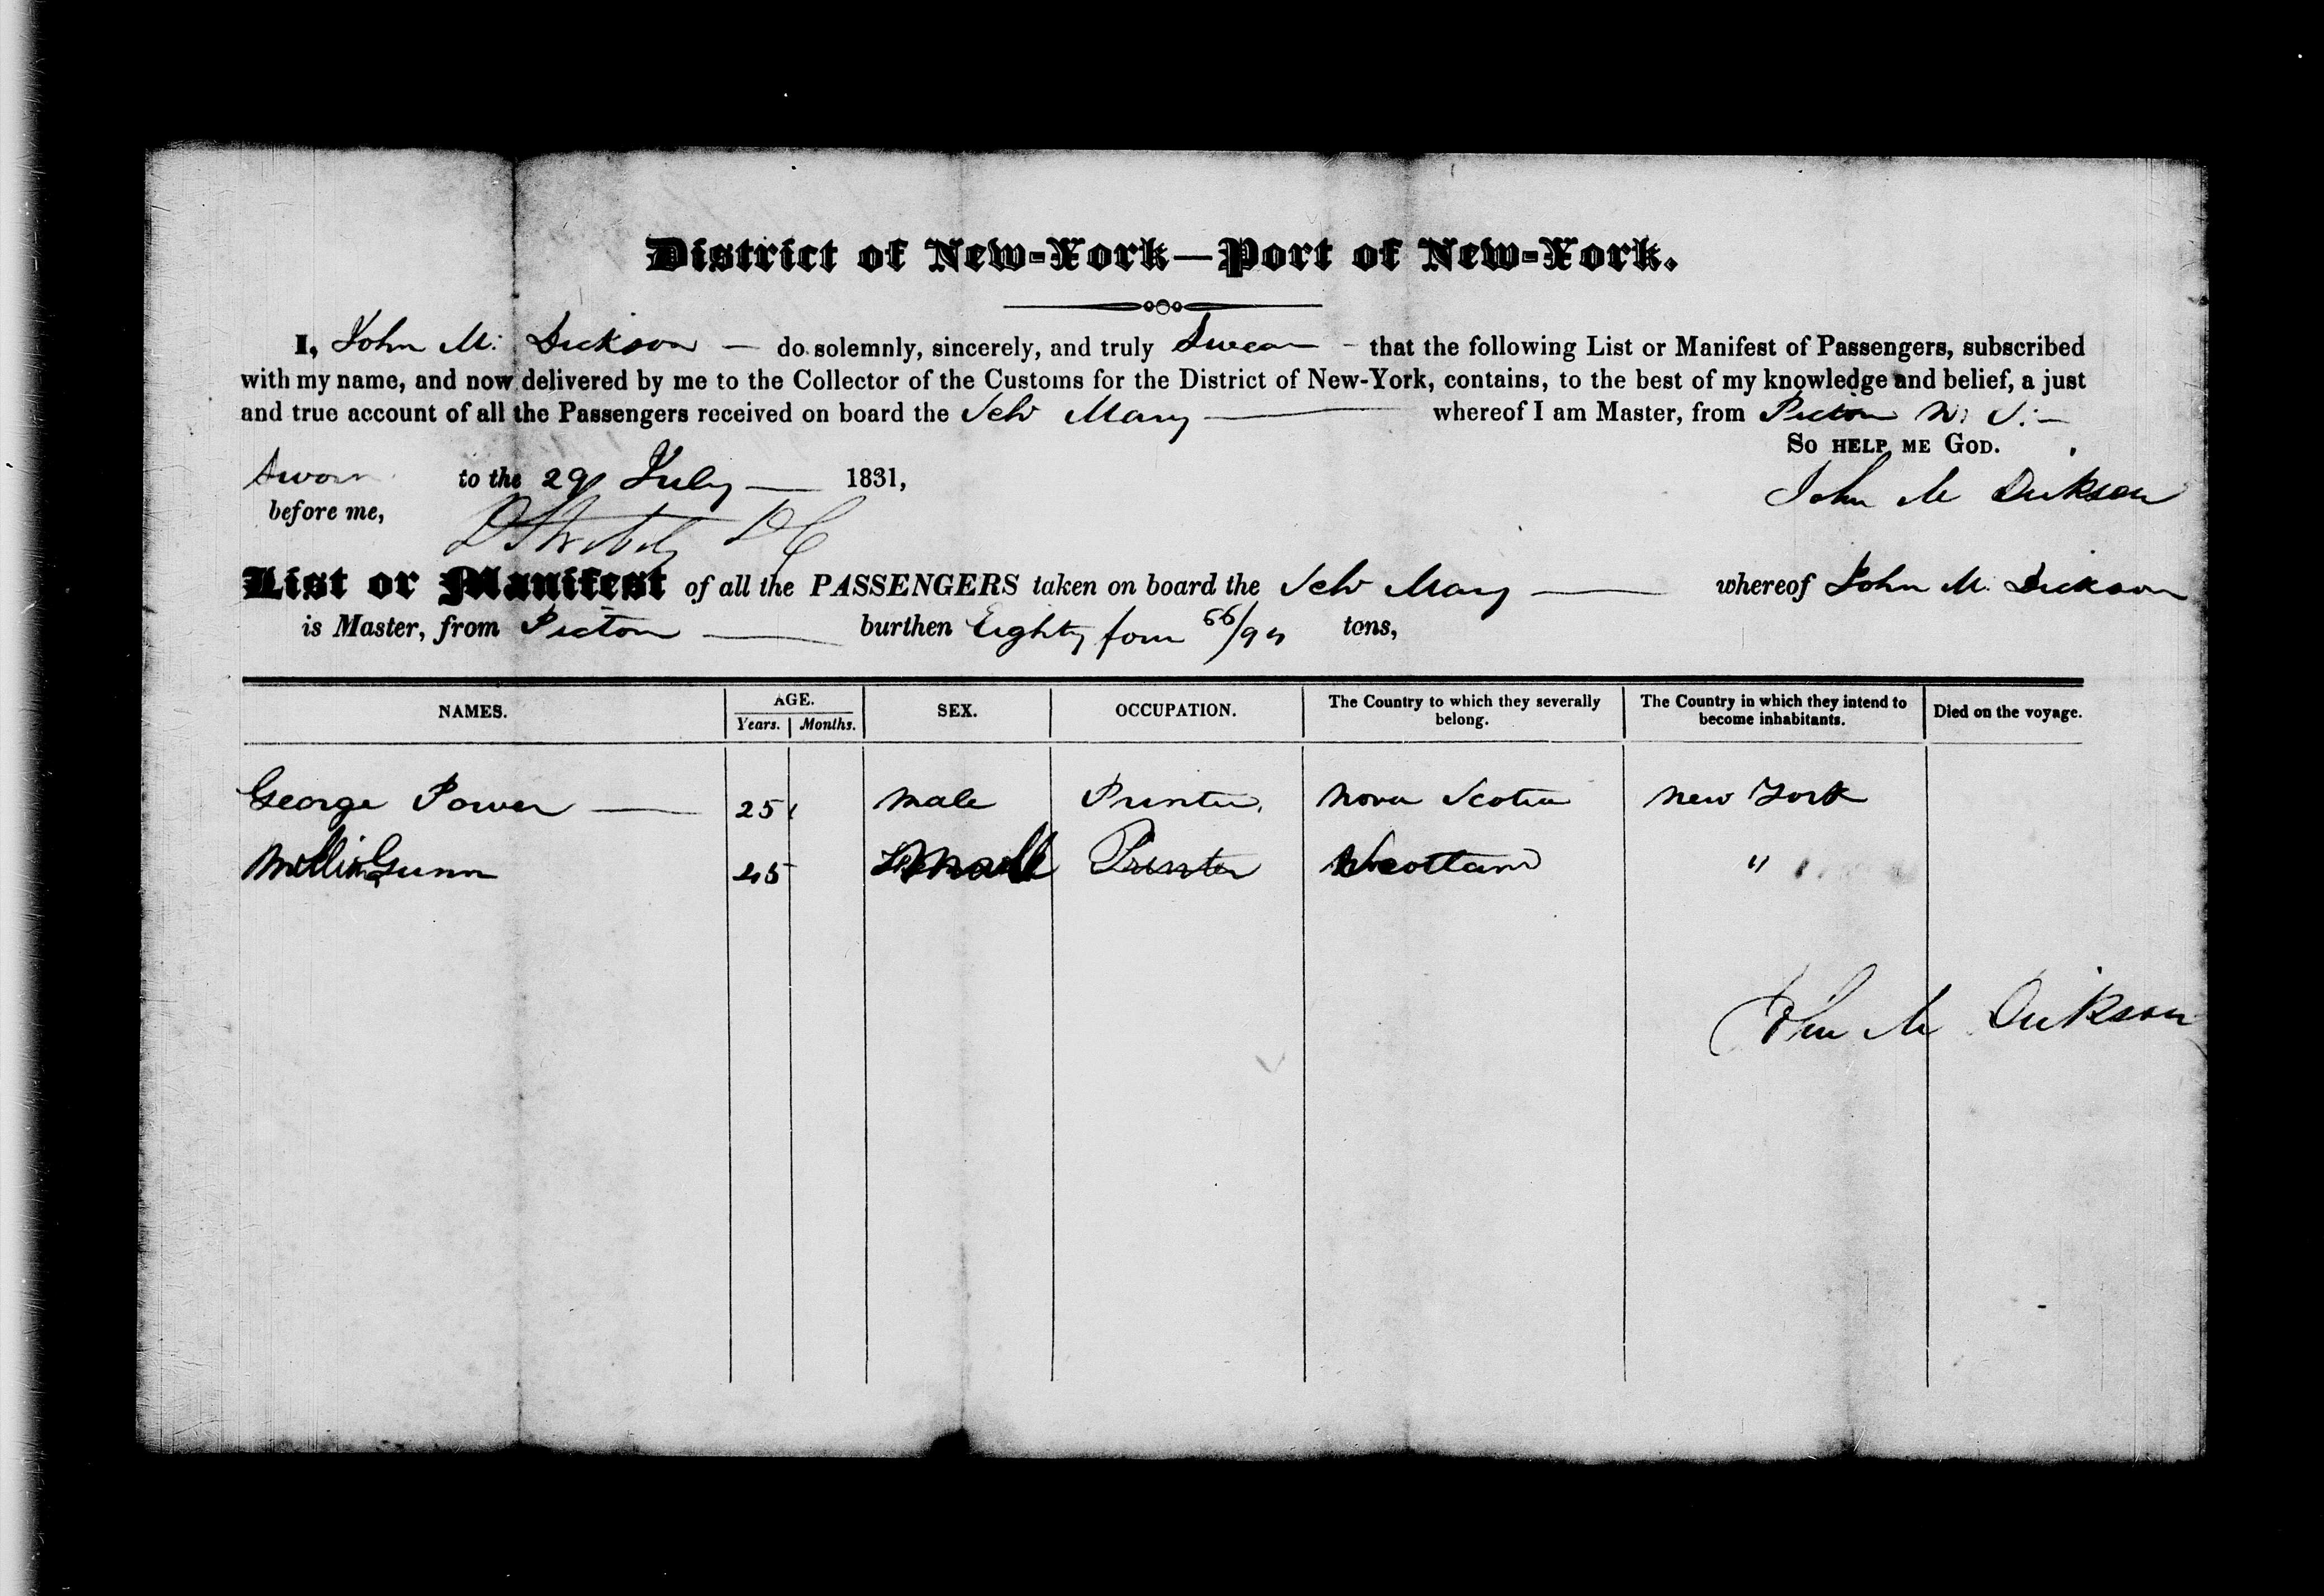 District of New-York—Port of New-York.
I, John M. Dickson — do solemnly, sincerely, and truly Swear – that the following List or Manifest of Passengers, subscribed
with my name, and now delivered by me to the Collector of the Customs for the District of New-York, contains, to the best of my knowledge and belief, a just
and true account of all the Passengers received on board the Schr Mary — whereof I am Master, from Pictou N. S. –
SO HELP ME GOD.
Sworn to the 29 July — 1831,
John M Dickson
before me,
List or Manifest of all the PASSENGERS taken on board the Schr Mary — whereof John M. Dickson
is Master, from Pictou — burthen Eighty four 66/95 tons,
NAMES. AGE. SEX. OCCUPATION. The Country to which they severally belong. The Country in which they intend to become inhabitants. Died on the voyage.
Years. Months.
George Power — 25 male Printer, Nova Scotia New York
Gunn 45 Printer Scotland "
John M Dickson